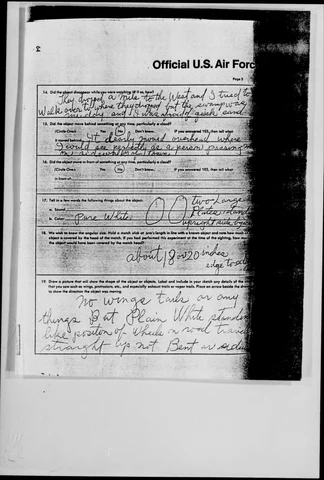 Official U.S. Air Forc
Page 3
14. Did the object disappear while you were watching it? If so, how?
They dropped a mile to the West and I tried to
Walk over to where they dropped but the swamp was
and I was afraid quick sand
15. Did the object move behind something at any time, particularly a cloud?
(Circle One): Yes No Don't Know. If you answered YES, then tell what
it moved behind: It clearly moved overhead where
I could see perfectly as a person passing
16. Did the object move in front of something at any time, particularly a cloud?
(Circle One): Yes No Don't Know. If you answered YES, then tell what
in front of:
17. Tell in a few words the following things about the object:
a. Sound
b. Color Pure White
two Large
Plates
upright side
18. We wish to know the angular size. Hold a match stick at arm's length in line with a known object and note how much of the
object is covered by the head of the match. If you had performed this experiment at the time of the sighting, how much
the object would have been covered by the match head?
about 18 or 20 inches
edge to
19. Draw a picture that will show the shape of the object or objects. Label and include in your sketch any details of the
that you saw such as wings, protrusions, etc., and especially exhaust trails or vapor trails. Place an arrow beside the
to show the direction the object was moving.
No wings tails or any
things But Plain White
like position of Wheels on road
straight up not Bent or